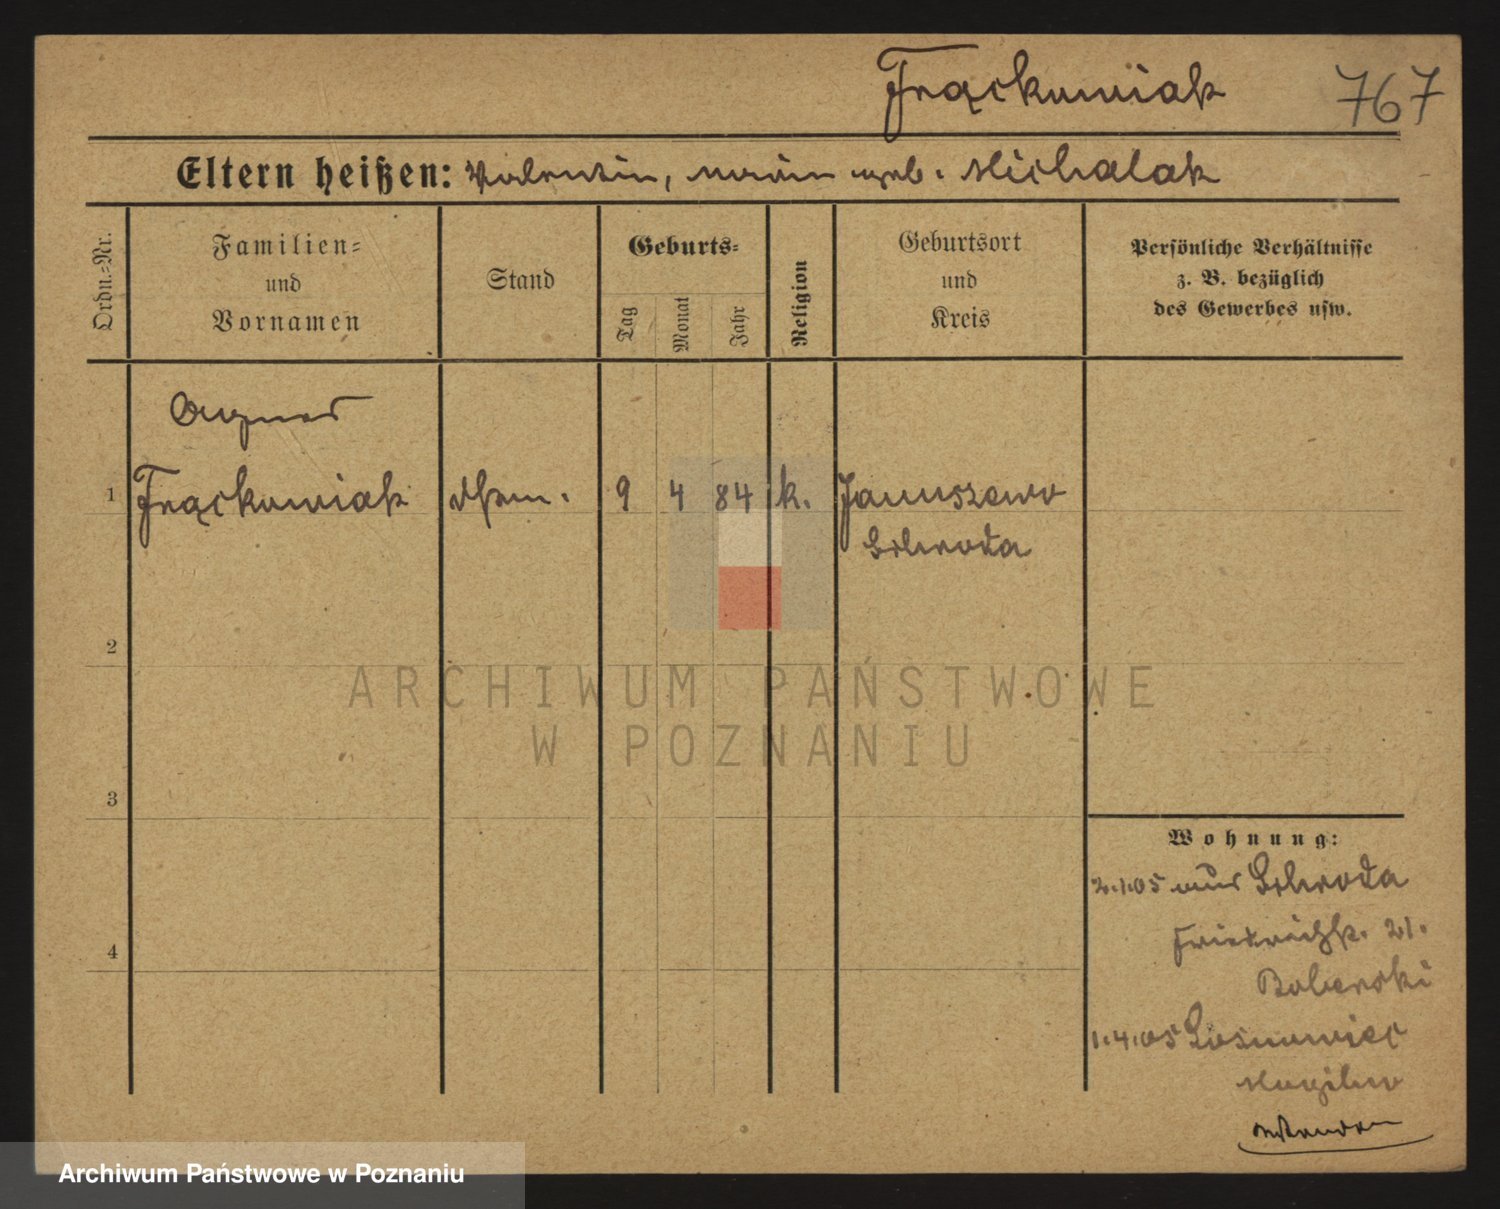 Frąckowiak 767
Eltern heißen: Valentin, Marie geb. Michalak
Ordn.=Nr.
Familien=
und
Vornamen
Stand
Geburts=
Tag
Monat
Jahr
Religion
Geburtsort
und
Kreis
Persönliche Verhältnisse
z. B. bezüglich
des Gewerbes usw.
Agnes
1 Frąckowiak 9 4 84 k. Januszewo
Schroda
2
3
4
Wohnung:
2.1.05 aus Schroda
Friedrichstr. 21.
Boberski
1.4.05 Sosnowiec
Mogilno
ARCHIWUM PAŃSTWOWE
W POZNANIU
Archiwum Państwowe w Poznaniu